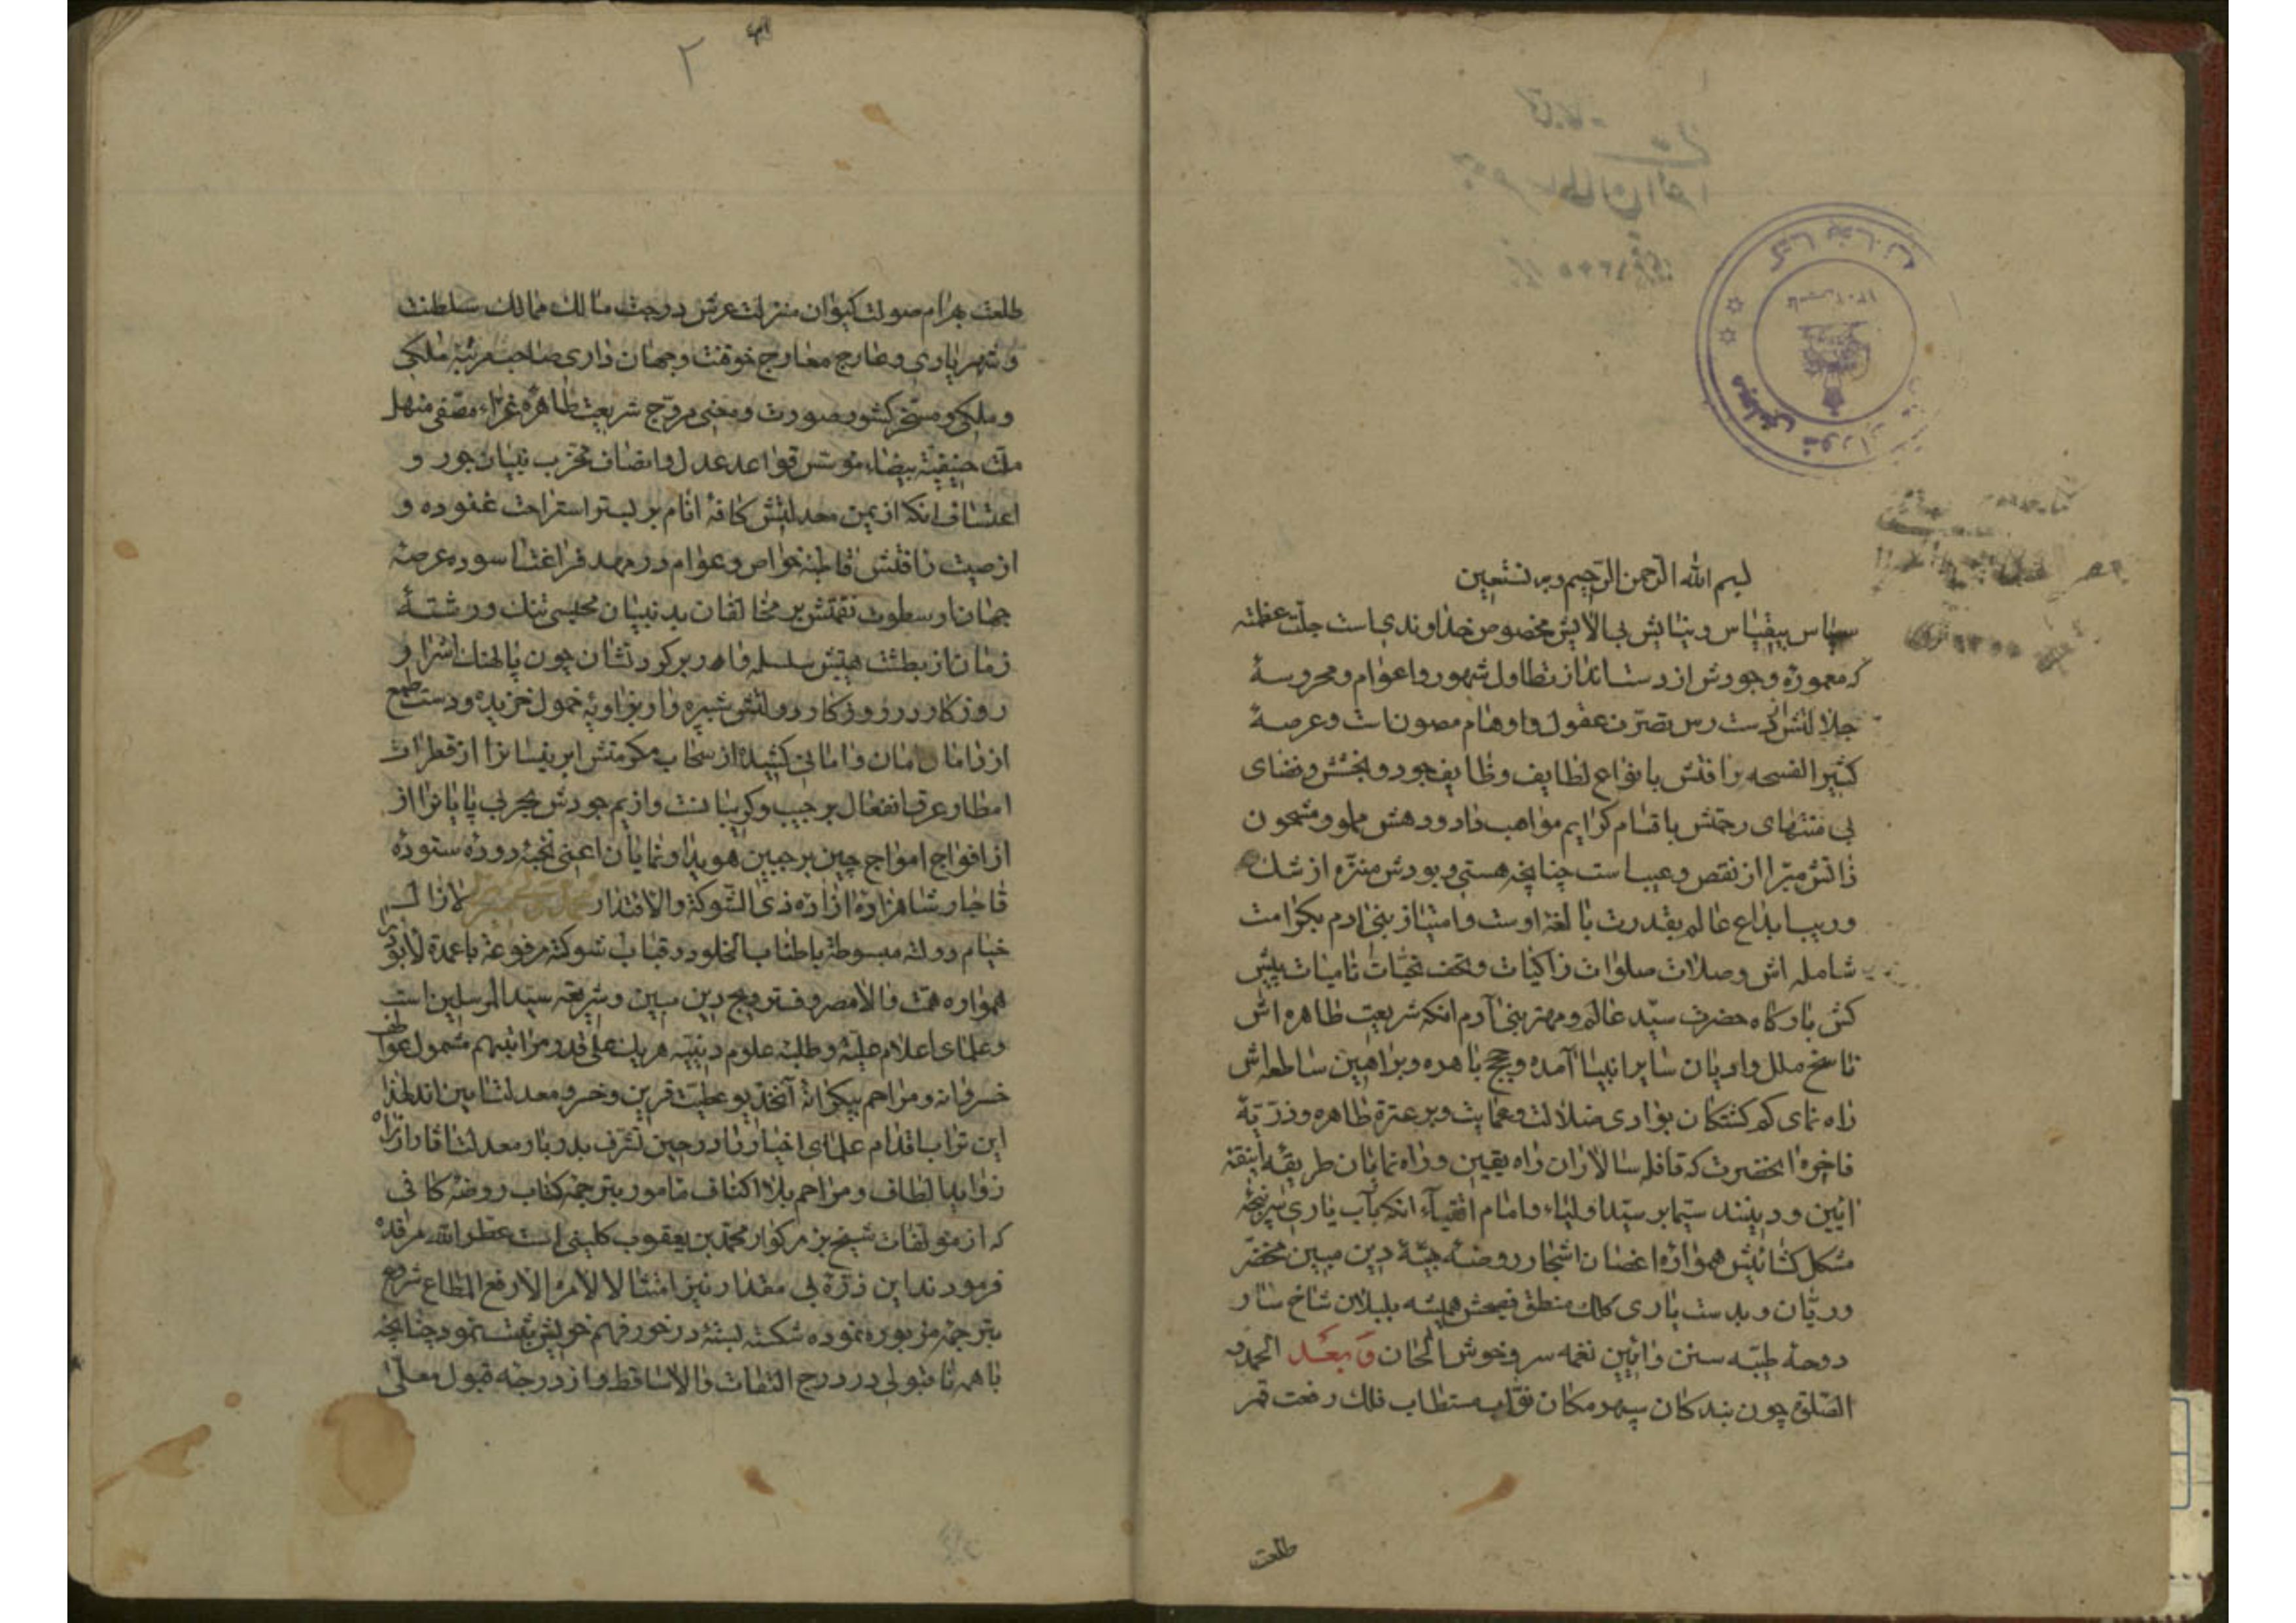 بسم الله الرحمن الرحیم وبه نستعین
سپاس بیقیاس و نیایش بی‌الایش مخصوص خداوندی است جلت عظمته
که معموره وجودش از دست انداز تطاول شهور و اعوام و محروسهٔ
جلالتش از دست رس تصرف عقول و اوهام مصون است و عرصهٔ
کثیر الفسحه رافتش بانواع لطایف وظایف جود و بخشش و فضای
بی منتهای رحمتش باقسام کرایم مواهب داد و دهش مملو و مشحون
ذاتش مبرا از نقص و عیب است چنانچه هستی و بودش منزه از شک
و ریب ابداع عالم بقدرت بالغه اوست و امتیاز بنی ادم بکرامت
شامله اش وصلات صلوات زاکیات و تحف تحیات نامیات پیش
کش بارکاه حضرت سید عالم و مهتر بنی آدم انکه شریعت طاهره اش
ناسخ ملل و ادیان سایر انبیا آمده و حجج باهره و براهین ساطعه اش
راه نمای کم کشتکان بوادی ضلالت و عمایت و بر عترة طاهره و ذریهٔ
فاخره انحضرت که قافله سالاران راه یقین و راه نمایان طریقهٔ انیقه
ائین و دینند سیما بر سید اولیاء و امام اتقیاء انکه بآب یاری سرپنجهٔ
مشکل کشائیش همواره اغصان اشجار روضهٔ بهیهٔ دین مبین مخضر
و ریان و بدست یاری کلک منطق فصیحش همیشه بلبلان شاخ سار
دوحهٔ طیبه سنن و ائین نغمه سر و خوش الحان وبعد الحمد و
الصلوة چون بندکان سپهر مکان نواب مستطاب فلک رفعت قمر
طلعت
۲
طلعت بهرام صولت کیوان منزلت عرش درجت مالک ممالک سلطنت
و شهریاری و عارج معارج خوقنت و جهان داری صاحب مرتبهٔ ملکی
و ملکی و مسخر کشور صورت و معنی مروج شریعت طاهرهٔ غراء مصفی منهل
ملت حنیفیهٔ بیضاء موسس قواعد عدل و انصاف مخرب بنیان جور و
اعتساف انکه از یمن معدلتش کافهٔ انام بر بستر استراحت غنوده و
از صیت رافتش قاطبهٔ خواص و عوام در مهد فراغت اسوده عرصهٔ
جهان از سطوت نقمتش بر مخالفان بد بنیان محبسی تنک و رشتهٔ
زمان از بطشت هیبتش سلسله وار بر کردنشان چون پالهنک اشرار
روزکار در روزکار دولتش شپره وار بزاویهٔ خمول خزیده و دست طمع
از دامان امان و امانی کشیده از سحاب مکرمتش ابر نیسانرا از قطرات
امطار عرق انفعال بر جیب و کریبانست و از یم جودش بحر بی پایانرا از
از افواج امواج چین بر جبین هویدا و نمایان اعنی نخبهٔ دودهٔ ستودهٔ
قاجار شاهزادهٔ ازاده ذی الشوکة والاقتدار لازالت
خیام دولته مبسوطة باطناب الخلود و قباب شوکته مرفوعة باعمدة
همواره همت والا مصروف ترویج دین مبین و شریعت سید المرسلین است
و علمای اعلام علیه و طلبهٔ علوم دینیه هر یک علی قدر مراتبهم مشمول عواطف
خسروانه و مراحم بیکرانهٔ آنخدیو عطیت قرین و خسرو معدلت ایین اند لهذا
این تراب اقدام علمای اخیار را در حین تشرف بدربار معدلت
زواید الطاف و مراحم بلا اکناف مامور بترجمهٔ کتاب روضهٔ کافی
که از مولفات شیخ بزرکوار محمد بن یعقوب کلینی است عطر الله مرقده
فرمودند این ذرهٔ بی مقدار نیز امتثالا لامر الارفع المطاع شروع
بترجمهٔ مزبوره نموده شکسته بسته در خور فهم خویش ثبت نمود چنانچه
با همه ناقبولی در درج التفات والا ساقط و از درجهٔ قبول معلی